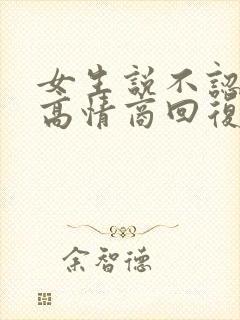 女生說不認
高情商回復
余智德